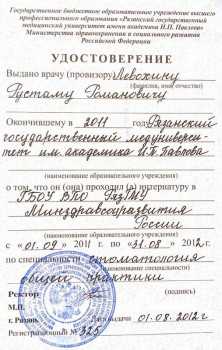 Государственное бюджетное образовательное учреждение высшего
профессионального образования «Рязанский государственный
медицинский университет имени академика И.П. Павлова»
Министерства здравоохранения и социального развития
Российской Федерации
УДОСТОВЕРЕНИЕ
Выдано врачу (провизору) Левохину
(фамилия, имя, отчество)
Рустаму Романовичу
Окончившему в 2011 году Рязанский
государственный медуниверси-
тет им. академика И.П. Павлова
(наименование образовательного учреждения)
о том, что он (она) проходил (а) интернатуру в
ГБОУ ВПО РязГМУ
Минздравсоцразвития
России
(наименование образовательного учреждения)
с «01.09» 2011 г. по «31.08» 2012 г.
по специальности стоматология
(наименование специальности)
общей практики
Ректор
(подпись)
М.П.
г. Рязань Дата выдачи 01.08.2012 г
Регистрационный № 325